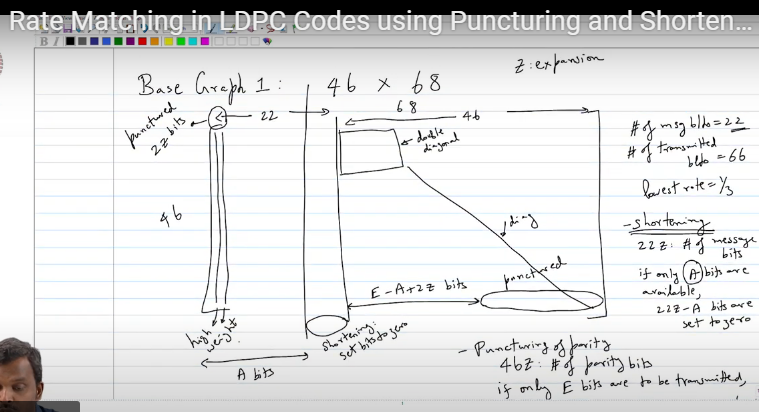 Rate Matching in LDPC Codes using Puncturing and Shorten...
B I
z : expansion
Base Graph 1 : 46 × 68
68
punctured
2z bits
22
46
double
diagonal
46
diag
punctured
E - A + 2z bits
high
weight
shortening:
set bits to zero
A bits
# of msg blks = 22
# of transmitted
blks = 66
lowest rate = 1/3
- shortening
22z : # of message
bits
if only A bits are
available,
22z - A bits are
set to zero
- Puncturing of parity
46z : # of parity bits
if only E bits are to be transmitted,